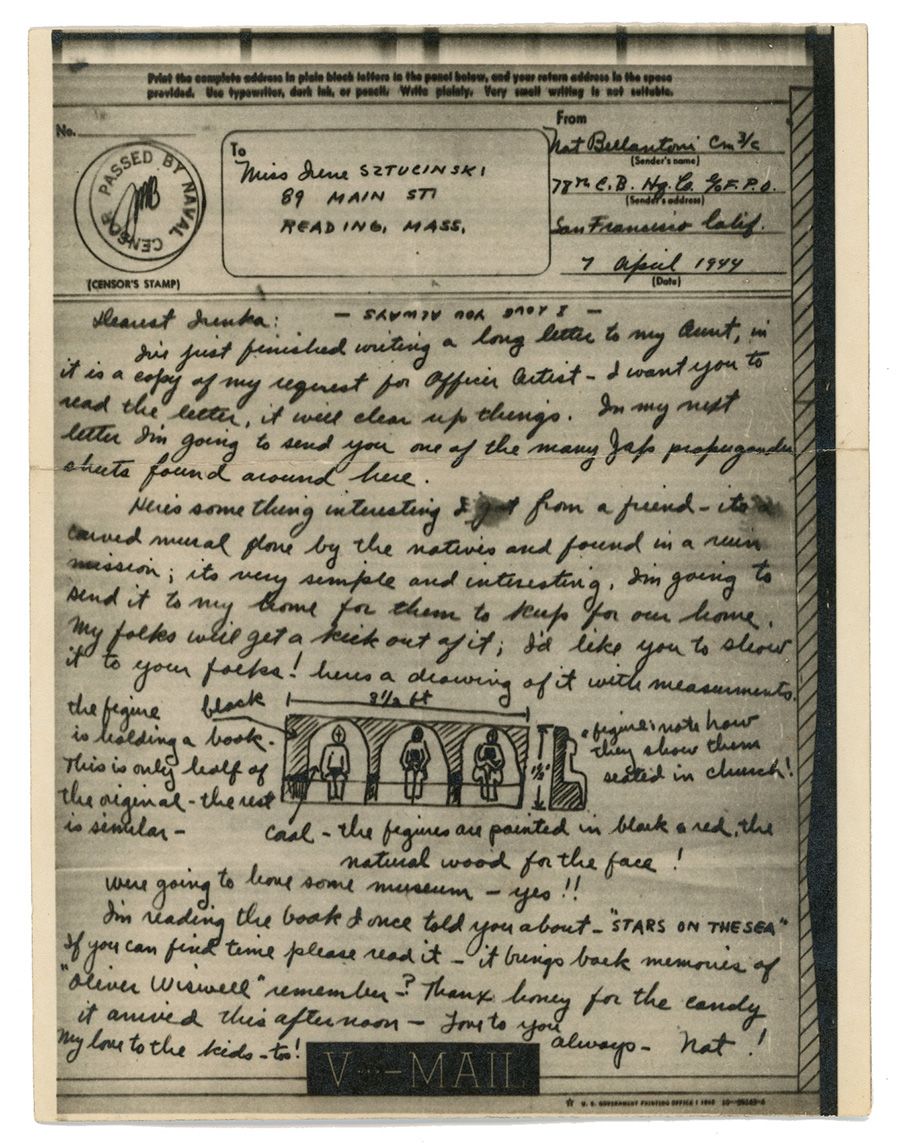 Print the complete address in plain block letters in the panel below, and your return address in the space
provided. Use typewriter, dark ink, or pencil. Write plainly. Very small writing is not suitable.
No.
PASSED BY NAVAL CENSOR
(CENSOR'S STAMP)
To
Miss Irene SZTUCINSKI
89 MAIN ST
READING, MASS.
From
Nat Bellantoni Cm 3/c
(Sender's name)
78th C.B. Hq. Co. c/o F.P.O.
(Sender's address)
San Francisco Calif.
7 April 1944
(Date)
Dearest Irenka:
— I LOVE YOU ALWAYS —
I've just finished writing a long letter to my Aunt, in
it is a copy of my request for Officer Artist – I want you to
read the letter, it will clear up things. In my next
letter I'm going to send you one of the many Jap propugander
sheets found around here.
Here's something interesting I got from a friend – its a
carved mural done by the natives and found in a ruin
mission; its very simple and interesting. I'm going to
send it to my home for them to keep for our home.
My folks will get a kick out of it; I'd like you to show
it to your folks! heres a drawing of it with measurments.
the figure
is holding a book.
This is only half of
the original – the rest
is similar –
black
3 1/2 ft
1 1/2"
figure; note how
they show them
seated in church!
coal – the figures are painted in black & red, the
natural wood for the face!
were going to have some museum – yes!!
I'm reading the book I once told you about – "STARS ON THE SEA"
If you can find time please read it – it brings back memories of
"Oliver Wiswell" remember –? Thanx honey for the candy
it arrived this afternoon – Love to you
always – Nat!
My love to the kids – too!
V···—MAIL
☆ U. S. GOVERNMENT PRINTING OFFICE